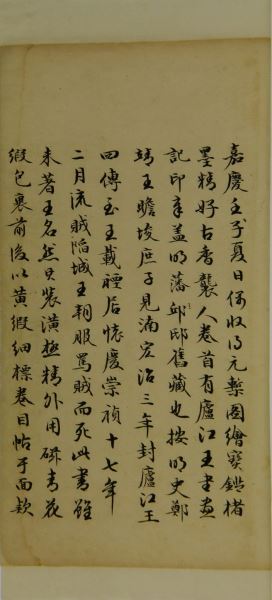 嘉慶壬子夏日偶收得元槧圖繪寶鑑楮
墨精好古香襲人卷首有廬江王書畫
記印章蓋明藩邸舊藏也按明史鄭
靖王瞻埈庶子見湳宏治三年封廬江王
四傳至王載堙居懷慶崇禎十七年
二月流賊陷城王翔服罵賊而死此書雖
未著王名然其裝潢極精外用磁青花
緞包裹前後以黃緞細標卷目帖于面款